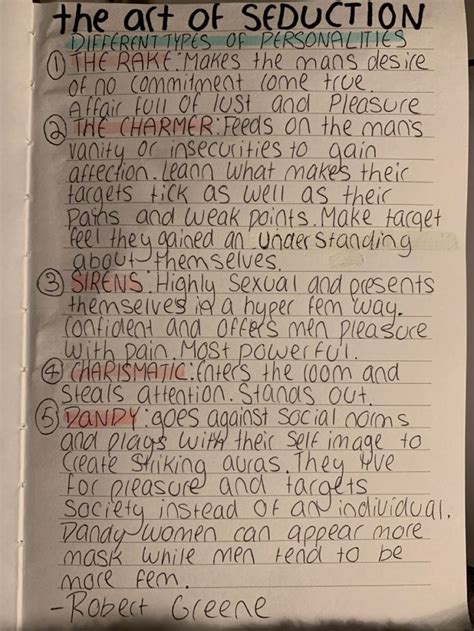 the art of SEDUCTION
DIFFERENT TYPES OF PERSONALITIES
① THE RAKE: Makes the mans desire
of no commitment come true.
Affair full of lust and Pleasure
② THE CHARMER: Feeds on the man's
vanity or insecurities to gain
affection. Learn what makes their
targets tick as well as their
Pains and weak points. Make target
feel they gained an understanding
about themselves.
③ SIRENS: Highly sexual and presents
themselves in a hyper fem way.
Confident and offers men pleasure
with pain. Most powerful.
④ CHARISMATIC: Enters the room and
Steals attention. Stands out.
⑤ DANDY: goes against social norms
and plays with their self image to
Create Striking auras. They live
for pleasure and targets
Society instead of an individual.
Dandy women can appear more
mask while men tend to be
more fem.
-Robert Greene